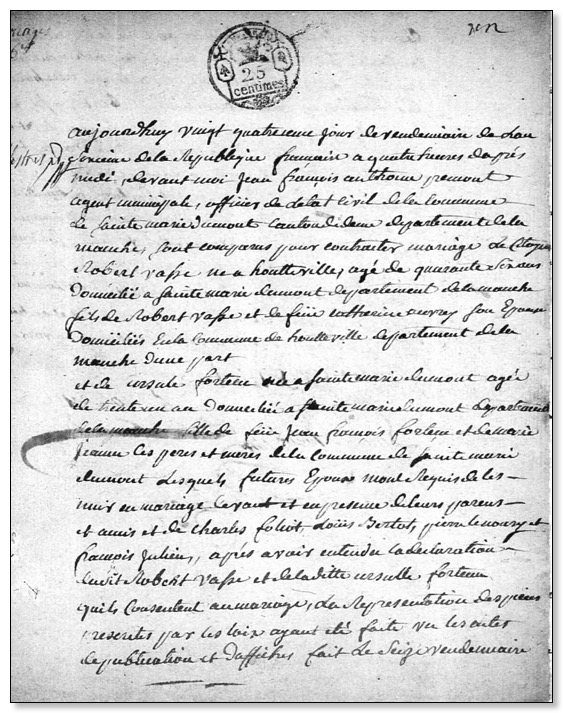 25
centimes
aujourdhuy vingt quatrieme jour de vendemiaire de Lan
Sixieme de la Republique francaise a quatre heures dapres
midi, devant moi Jean françois
agent municipale, officier de letat Civil de la Commune
de Sainte marie dumont canton departement de la
manche, sont comparus pour contracter mariage Le Citoyen
Robert vasse ne a houtteville, agé de quarante Six ans
Domicilié a sainte marie dumont departement de la manche
fils de Robert vasse et de feüe catherine Son Epouse
Domiciliés En la Commune de houtteville departement de la
manche Dune part
et de ursule fortene nee a sainte marie dumont agée
de trente un an Domiciliée a Sainte marie dumont departement
de la manche fille de feüe Jean francois fortene et de marie
Jeanne Les peres et meres de la Commune de Sainte marie
dumont Lesquels futures Epoux mont Requis de les
unir en mariage devant et en presence de leurs parens
et amis et de Charles foliot, Loüis Bertot, pierre et
françois Julien, apres avoir entendu la declaration
dudit Robert vasse et de laditte ursulle fortene
quils Consentent au mariage, La Representation des pieces
prescrites par les loix ayant été faite vu les actes
de publication et Daffiches fait Le Seize vendemiaire